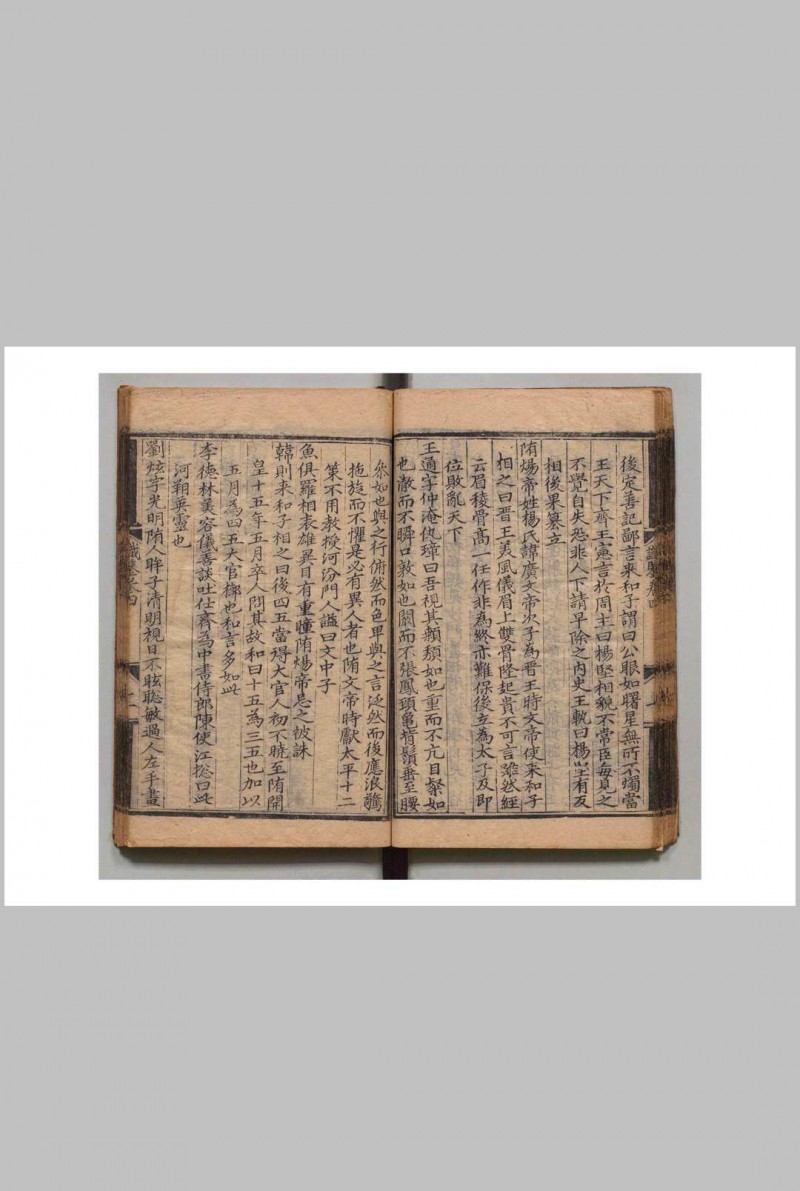 後定善記鄙言来和子謂曰公眼如曙星無所不燭當
王天下齊王憲言於周主曰楊堅相貌不常臣每見之
不覺自失恐非人下請早除之内史王軌曰楊堅有反
相後果篡立
隋煬帝姓楊氏諱廣文帝次子為晋王時文帝使来和子
相之曰晋王美風儀眉上雙骨隆起貴不可言雖然經
云眉稜骨高一任作非為終亦難保後立為太子及即
位敗亂天下
王通字仲淹仇璋曰吾視其顙頽如也重而不亢目粲如
也澈而不瞬口敦如也闊而不張鳳頸龜背鬚垂至腰
叅如也與之行俯然而色卑與之言泛然而後應浪驚
拖旋而不懼是必有異人者也隋文帝時獻太平十二
策不用教授河汾門人謚曰文中子
魚俱羅相表雄異目有重瞳隋煬帝忌之被誅
韓則来和子相之曰後四五當得大官人初不曉至隋開
皇十五年五月卒人問其故和曰十五為三五也加以
五月為四五大官槨也和言多如此
李德林美容儀善談吐仕齊為中書侍郎陳使江揔曰此
河朔英靈也
劉炫字光明隋人眸子清明視日不眩聡敏過人左手畫